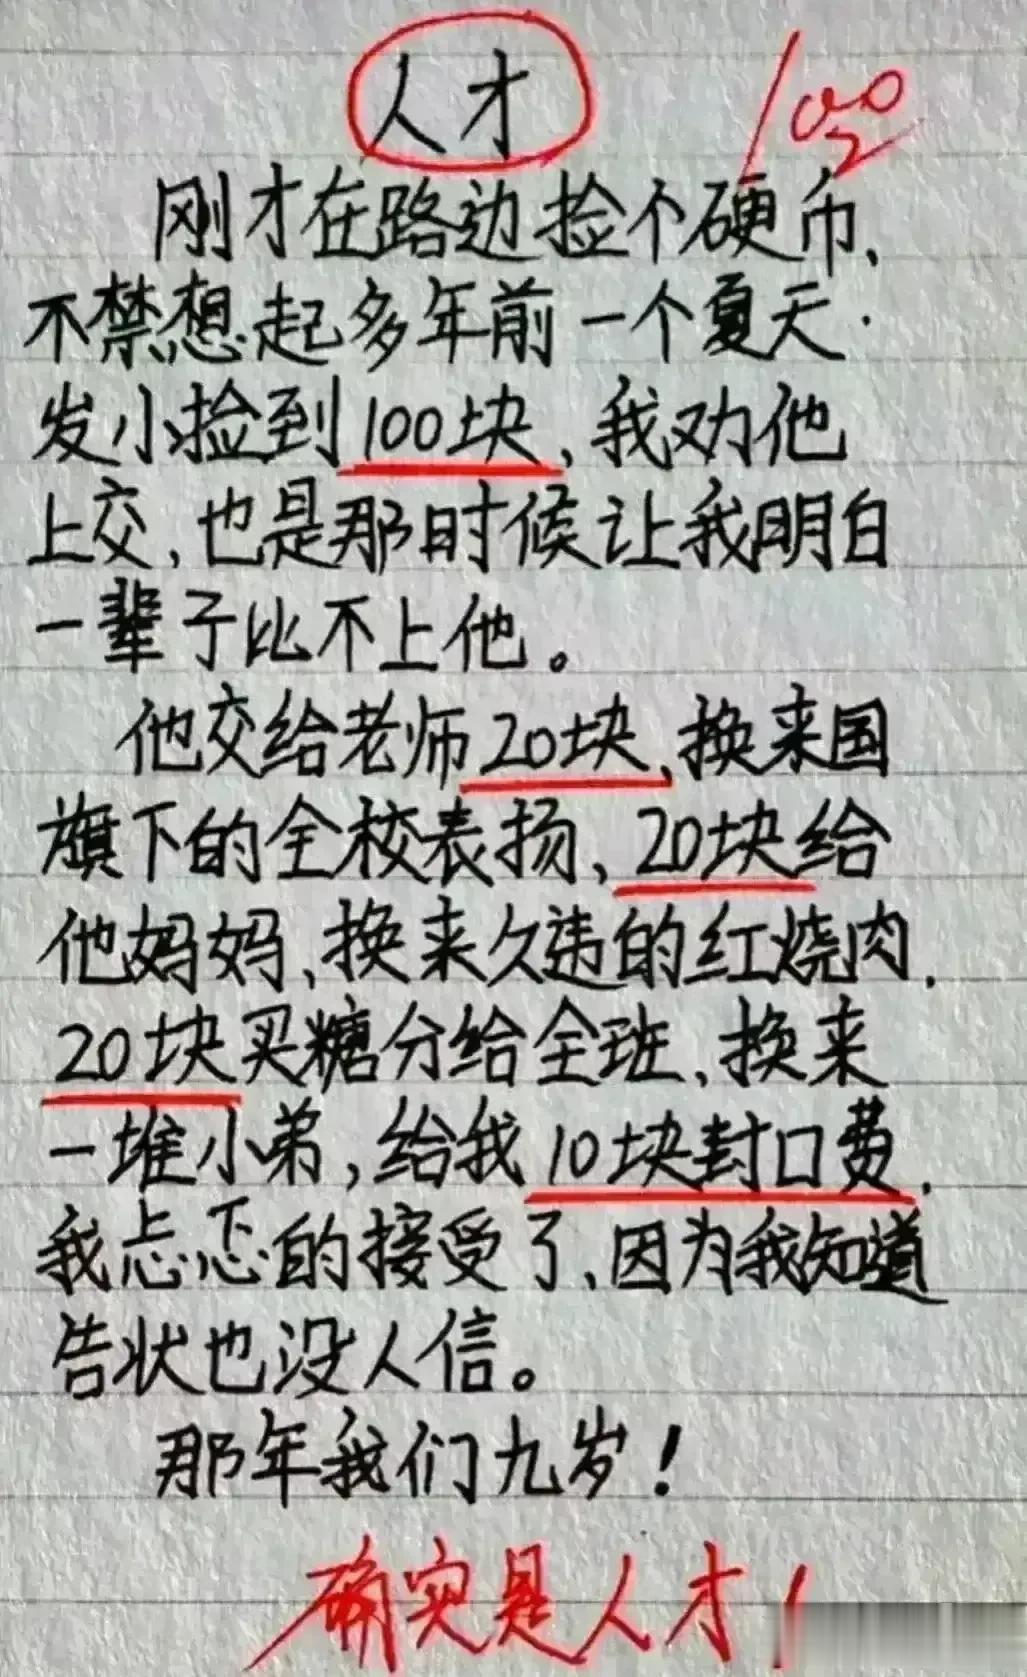 人才
100
刚才在路边捡个硬币、
不禁想起多年前一个夏天.
发小捡到100块,我劝他
上交,也是那时候让我明白
一辈子比不上他。
他交给老师20块,换来国
旗下的全校表扬、20块给
他妈妈、换来久违的红烧肉.
20块买糖分给全班、换来
一堆小弟,给我10块封口费.
我忐忑的接受了、因为我知道
告状也没人信。
那年我们九岁!
确实是人才!